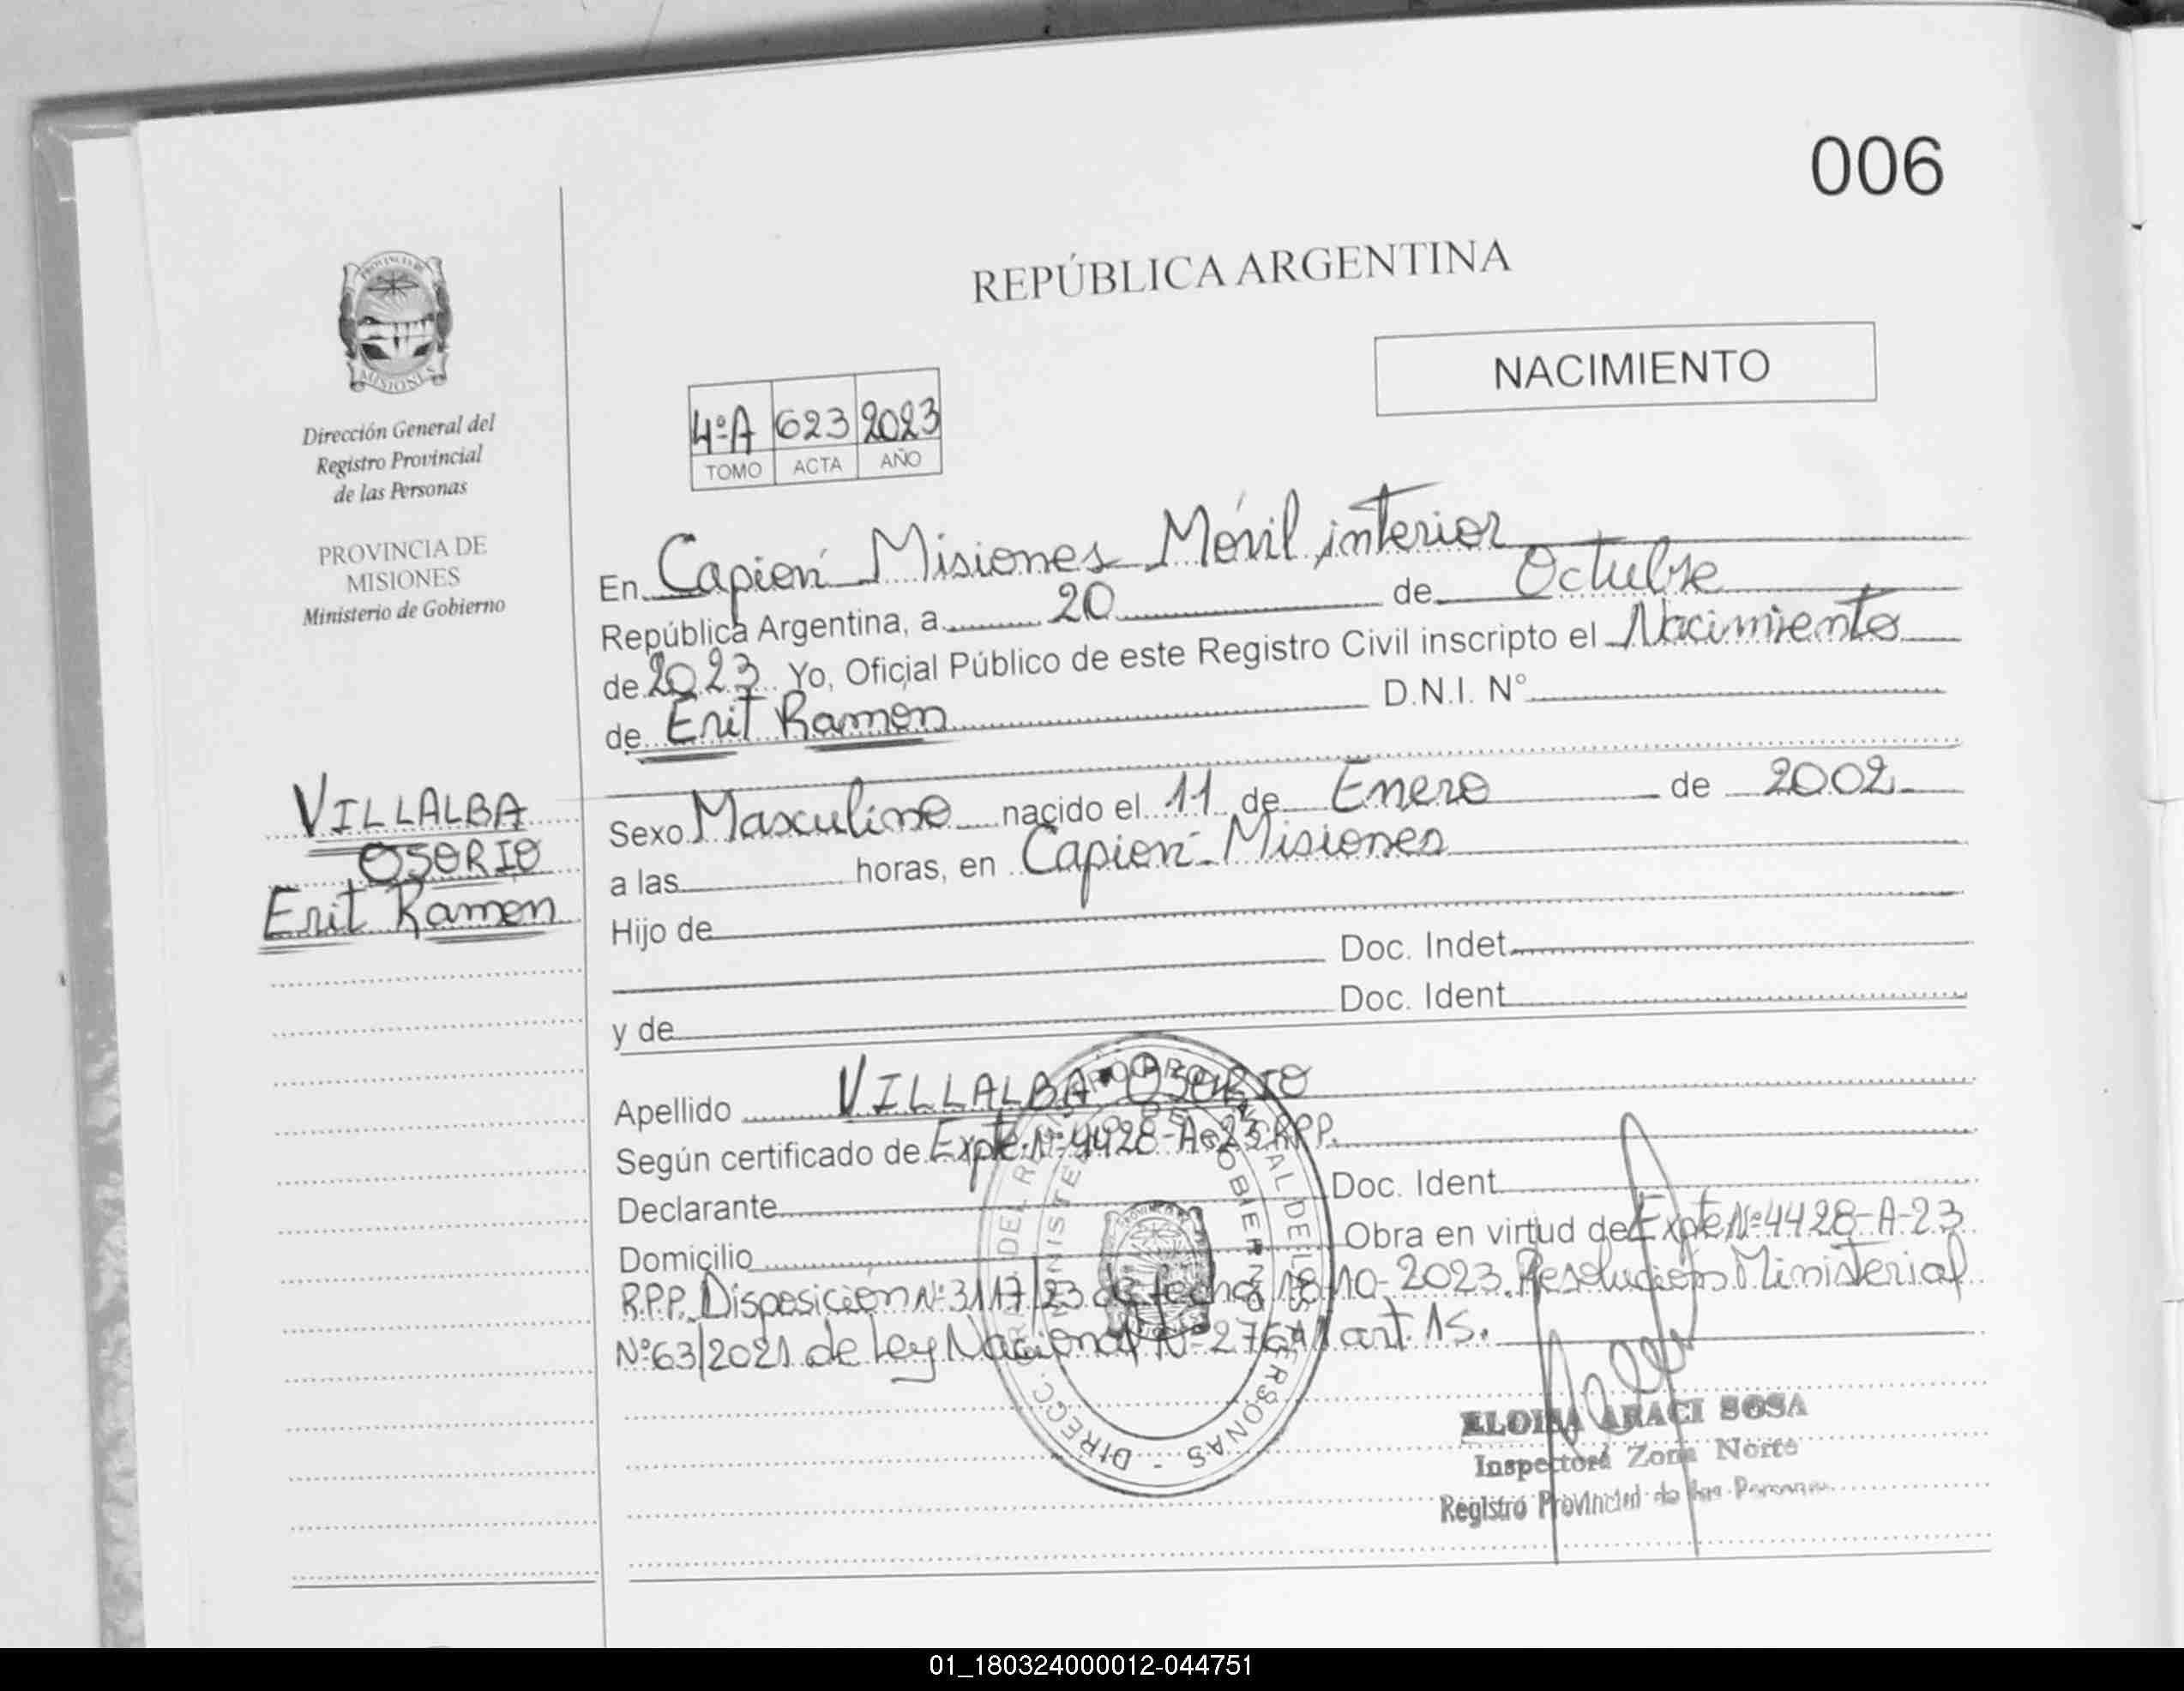 006
REPÚBLICA ARGENTINA
NACIMIENTO
PROVINCIA DE
MISIONES
Dirección General del
Registro Provincial
de las Personas
PROVINCIA DE
MISIONES
Ministerio de Gobierno
4ºA 623 2023
TOMO ACTA AÑO
En Capioví Misiones Móvil interior
República Argentina, a 20 de Octubre
de 2023 Yo, Oficial Público de este Registro Civil inscripto el Nacimiento
de Erit Ramon D.N.I. N°
VILLALBA
OSORIO
Erit Ramon
Sexo Masculino nacido el 11 de Enero de 2002
a las horas, en Capioví - Misiones
Hijo de
Doc. Indet
y de Doc. Ident
Apellido VILLALBA OSORIO
Según certificado de Expte Nº 4428-A-23 RPP.
Declarante Doc. Ident
Domicilio Obra en virtud de Expte Nº 4428-A-23
R.P.P. Disposición Nº 3117/23 de fecha 18-10-2023. Resolución Ministerial
Nº 63/2021 de Ley Nacional Nº 27611 art. 15.
DIRECC. DEL PROVINCIAL DE LAS PERSONAS -
MINISTE DE GOBIERNO
ELOISA ARACI SOSA
Inspectora Zona Norte
Registro Provincial de las Personas
01_180324000012-044751